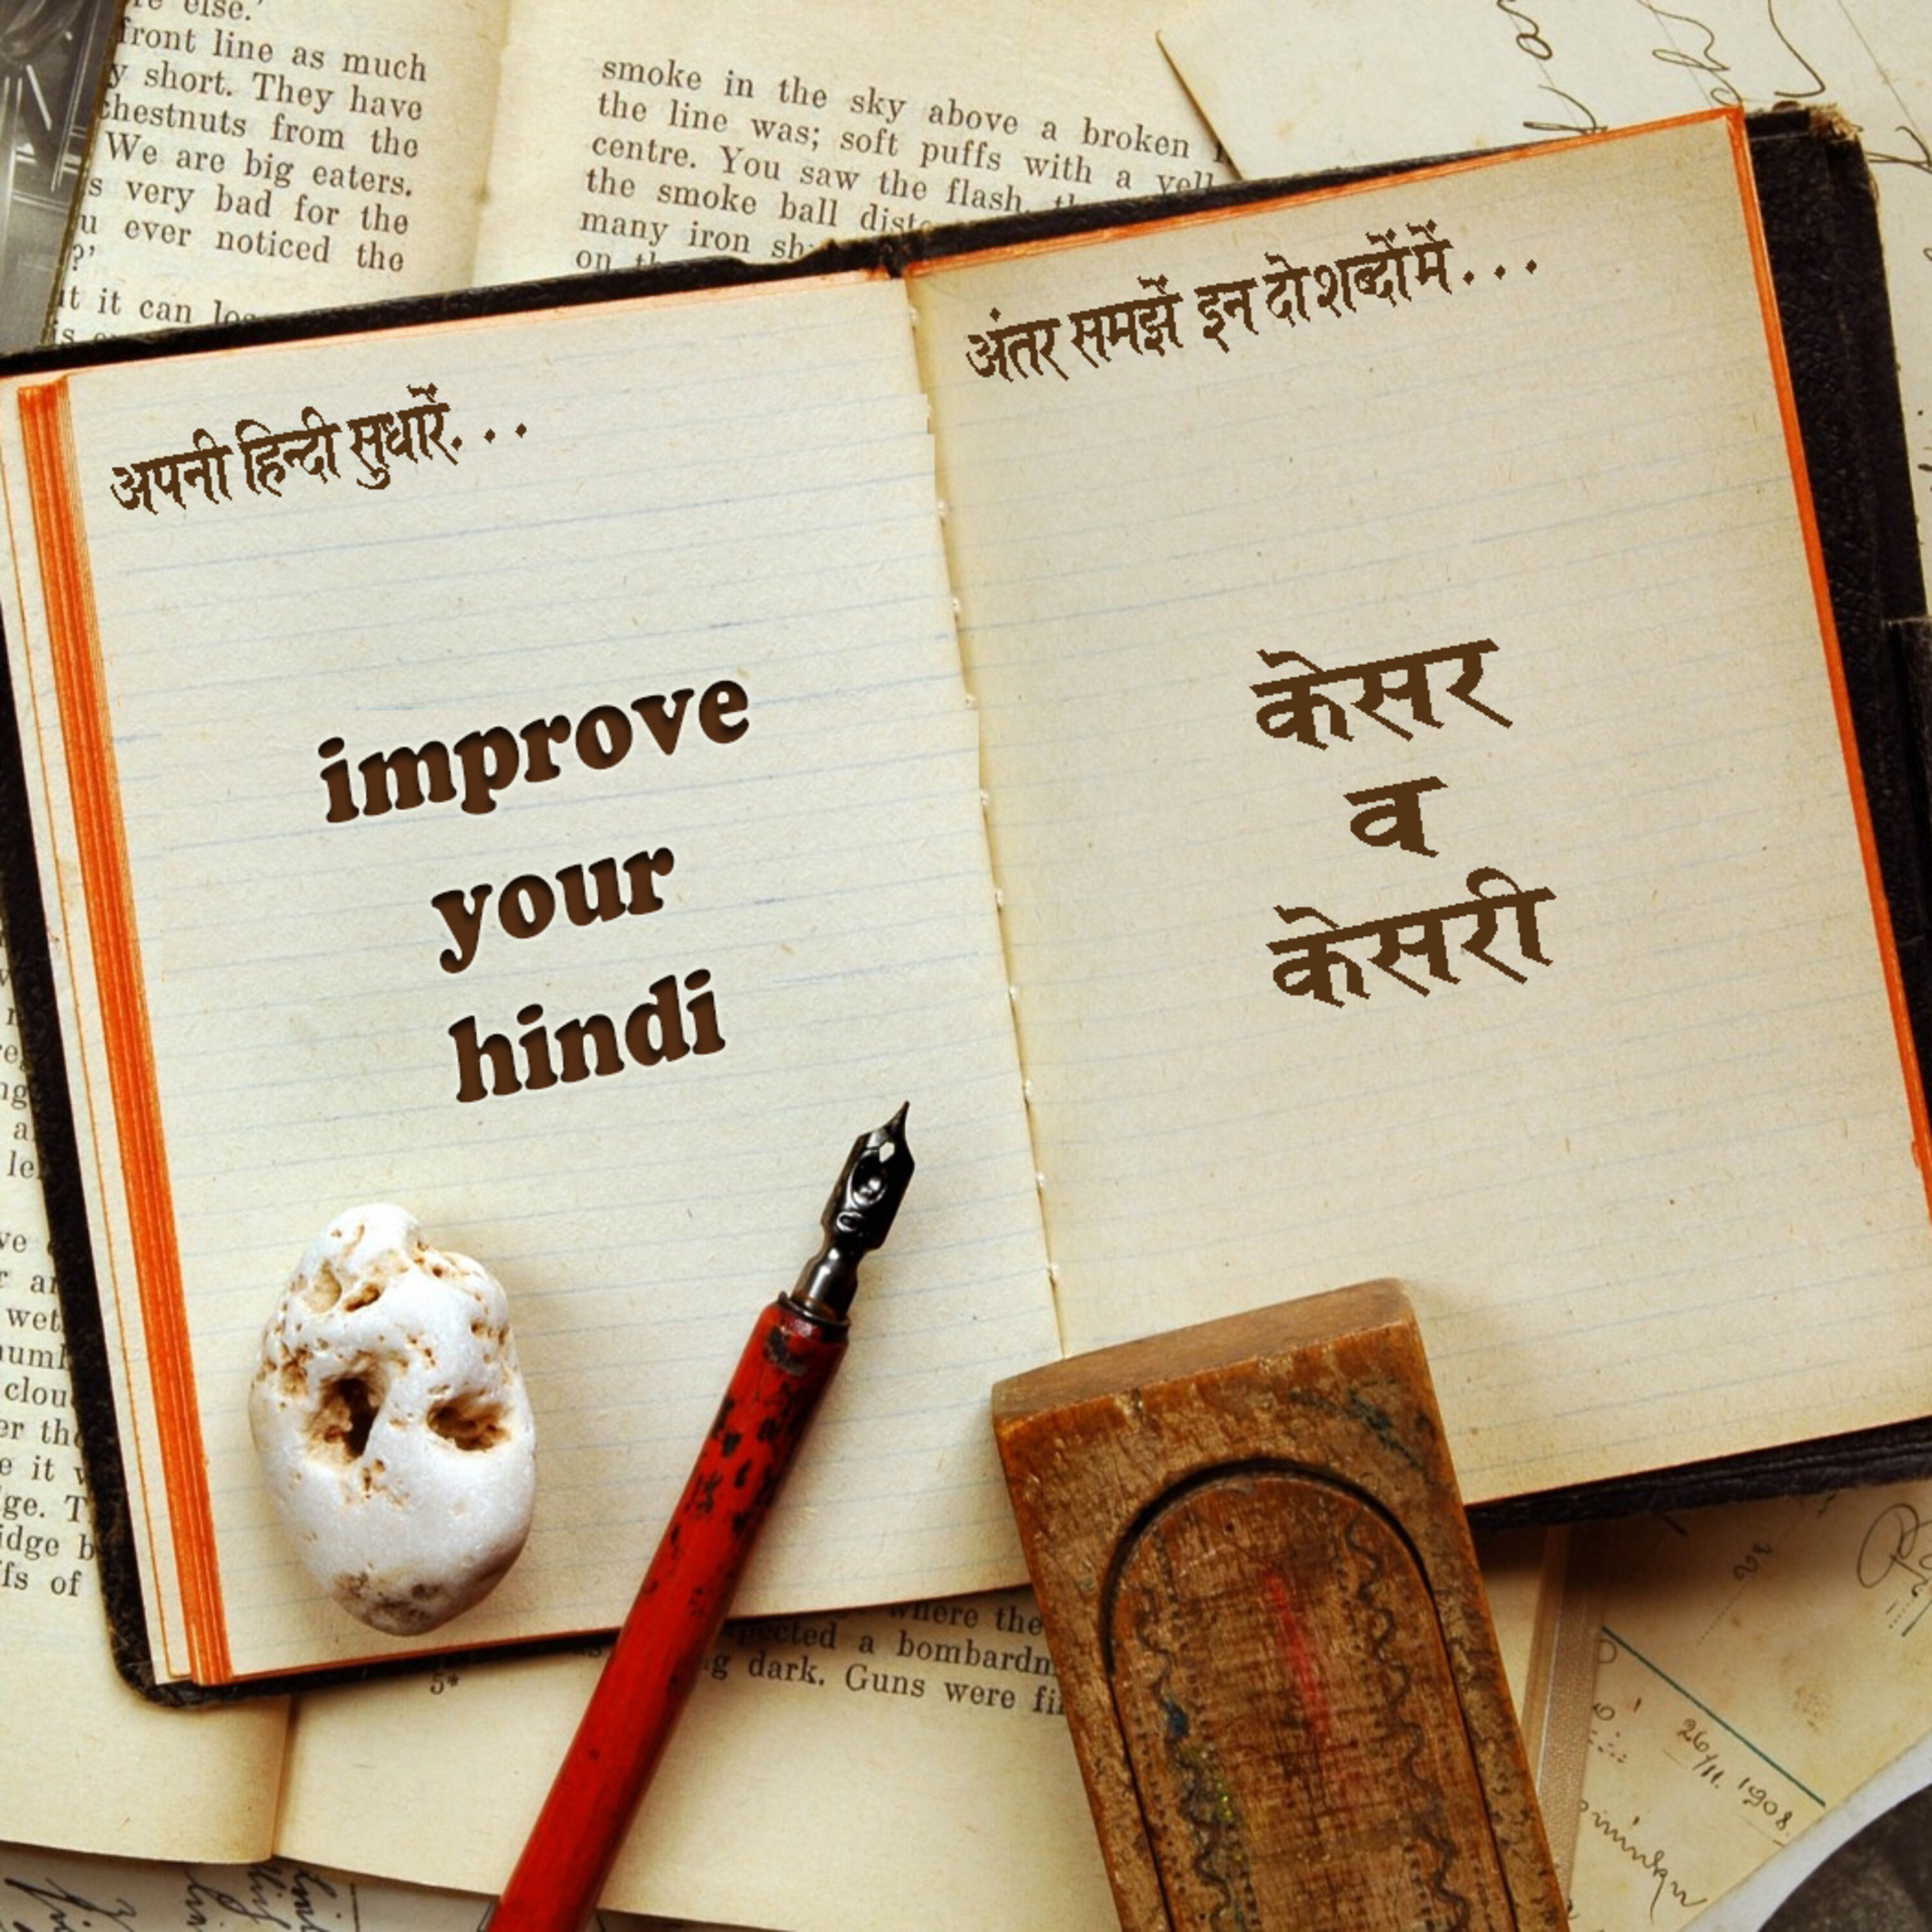 अपनी हिन्दी सुधारें. . .
improve
your
hindi
अंतर समझें इन दो शब्दों में . . .
केसर
व
केसरी
re else.'
front line as much
y short. They have
chestnuts from the
We are big eaters.
s very bad for the
u ever noticed the
?'
it it can
smoke in the sky above a broken
the line was; soft puffs with a
centre. You saw the flash,
the smoke ball
many iron
on
where the
a bombardm
dark. Guns were
5*
wet
clou
er the
e it
ge. T
idge b
fs of
26/11. 1908.